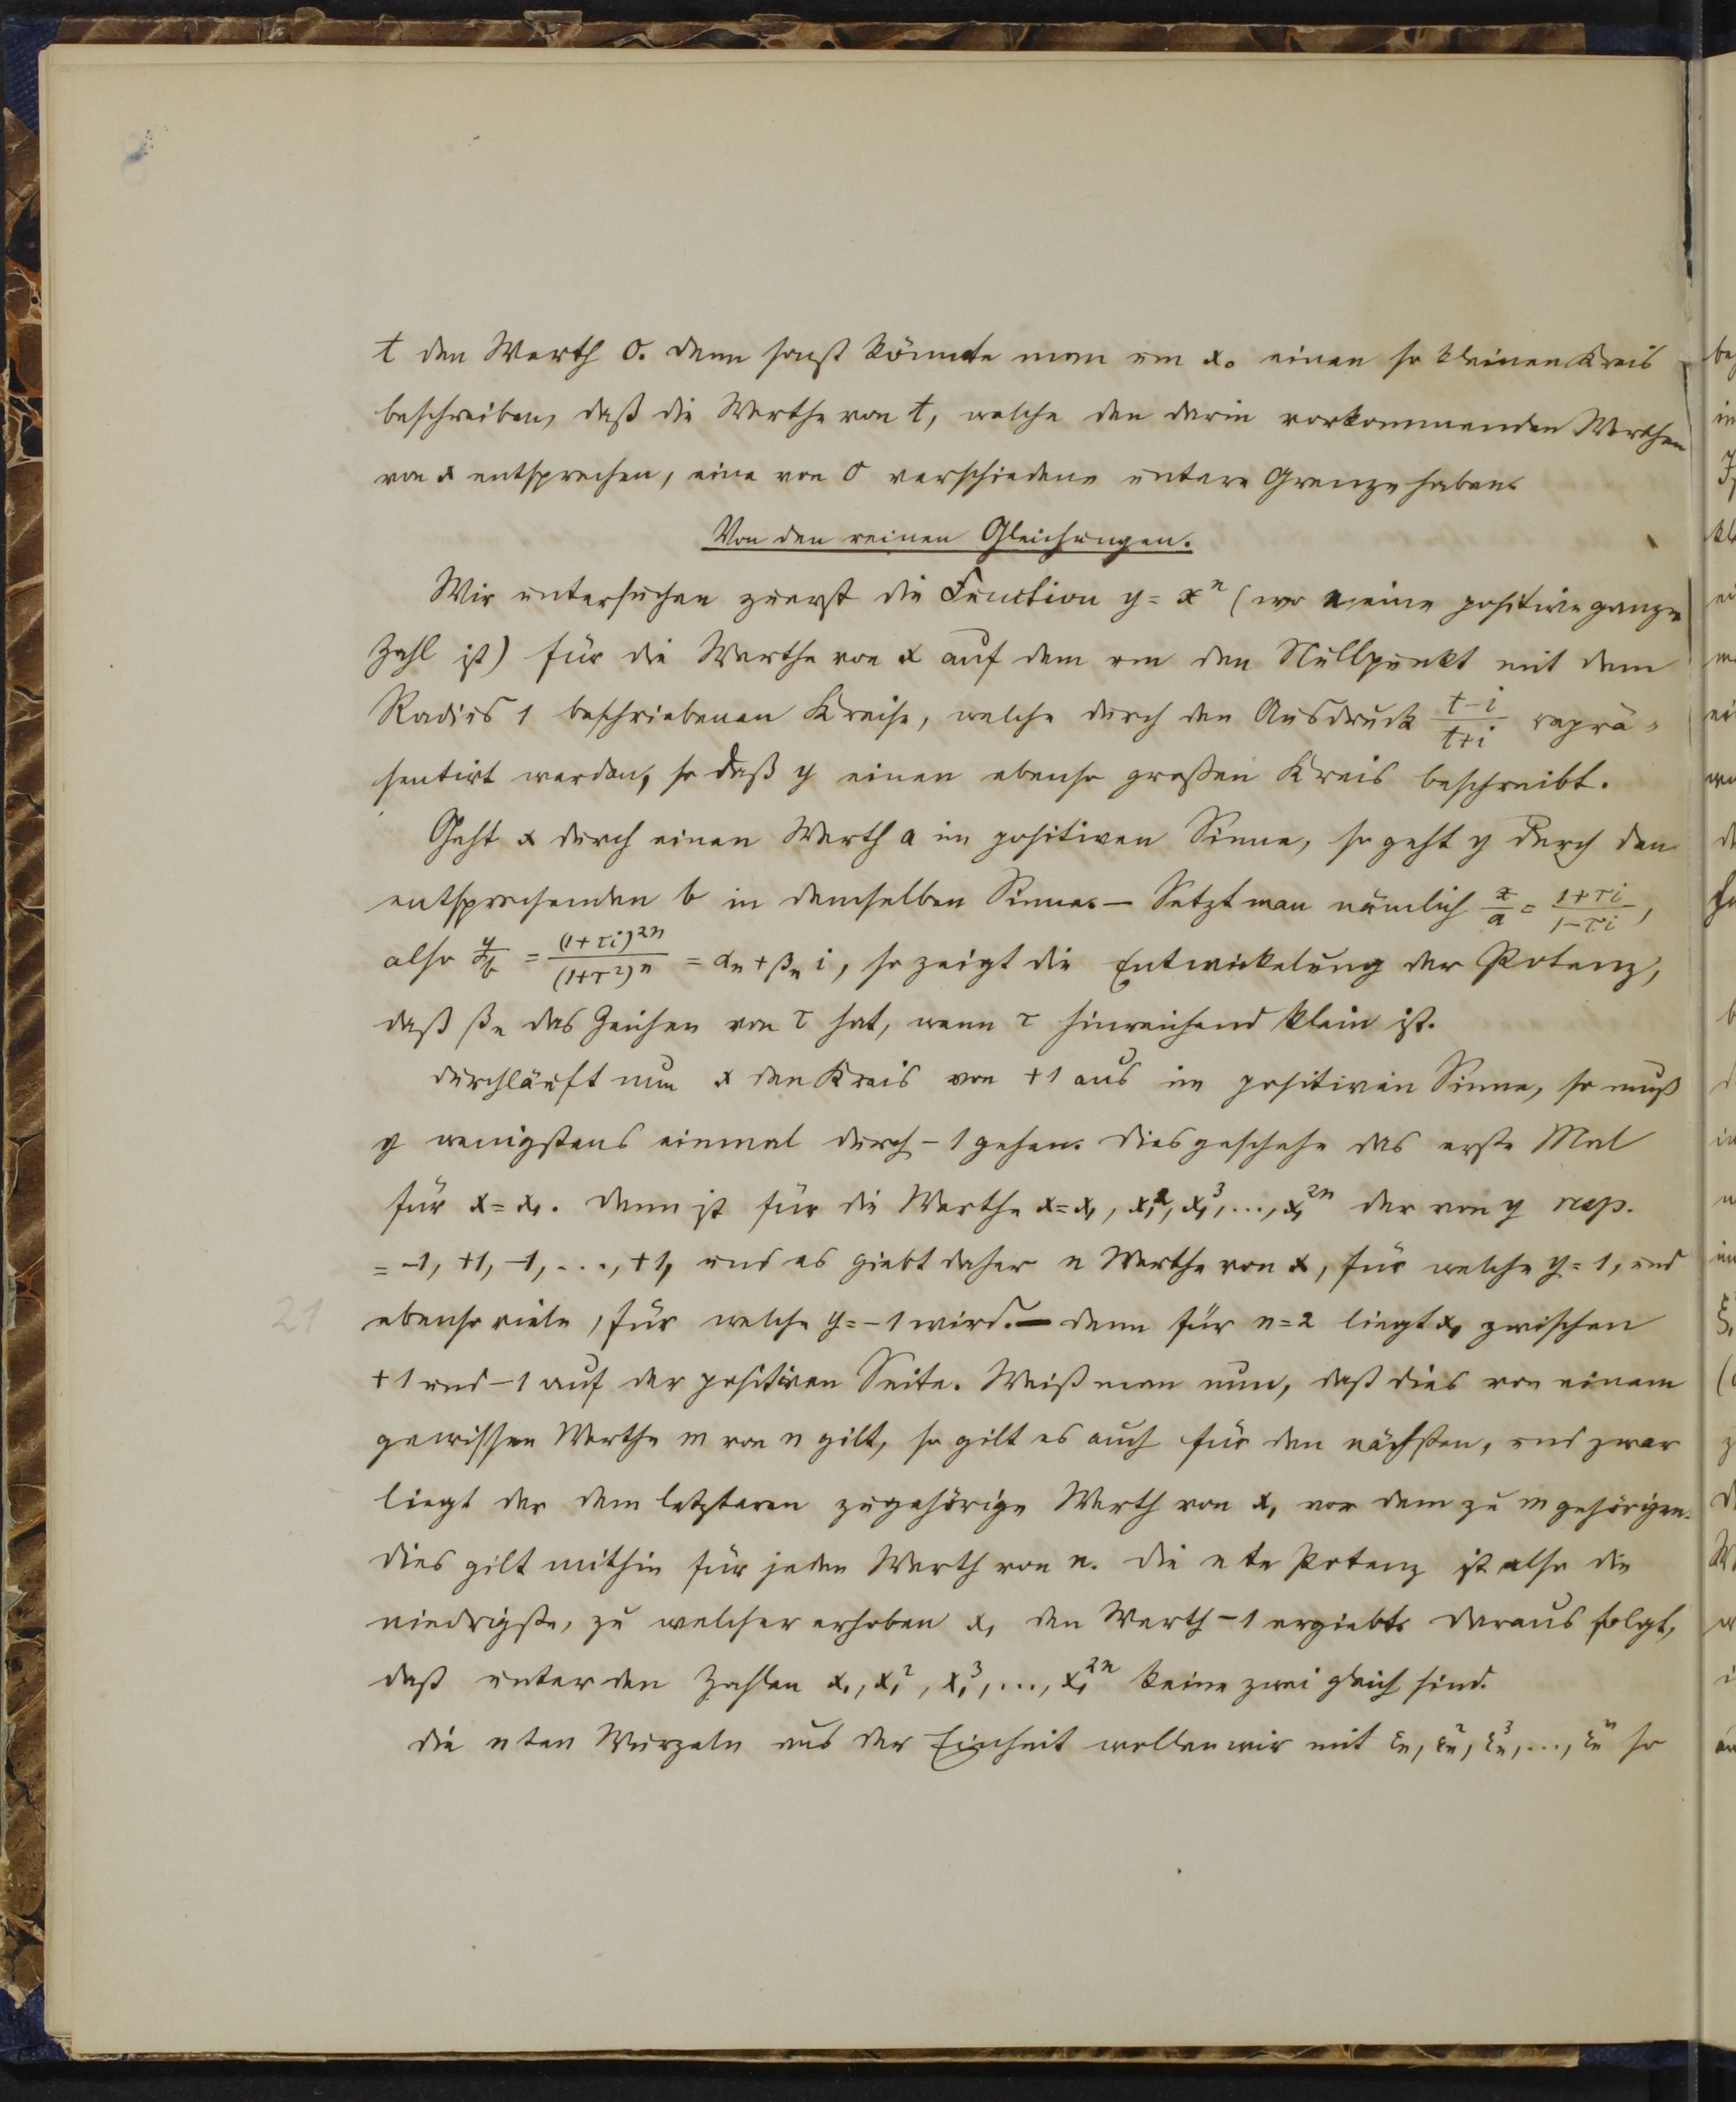 t den Werth 0. Denn sonst könnte man um x₀ einen so kleinen Kreis
beschreiben, daß die Werthe von t, welche den darin vorkommenden Werthen
von x entsprechen, eine von 0 verschiedene untere Grenze haben.
Von den reinen Gleichungen.
Wir untersuchen zuerst die Function y = xⁿ (wo n eine positive ganze
Zahl ist) für die Werthe von x auf dem um den Nullpunkt mit dem
Radius 1 beschriebenen Kreise, welche durch den Ausdruck (t-i)/(t+i) reprä-
sentirt werden, so daß y einen ebenso großen Kreis beschreibt.
Geht x durch einen Werth a im positiven Sinne, so geht y durch den
entsprechenden b in demselben Sinne. — Setzt man nämlich x/a = (1+τi)/(1-τi),
also y/b = (1+τi)²ⁿ/(1+τ²)ⁿ = αₙ + βₙ i, so zeigt die Entwickelung der Potenz,
daß βₙ das Zeichen von τ hat, wenn τ hinreichend klein ist.
Durchläuft nun x den Kreis von +1 aus im positiven Sinne, so muß
y wenigstens einmal durch -1 gehen. Dies geschehe das erste Mal
für x = x₁. Dann ist für die Werthe x = x₁, x₁², x₁³, ..., x₁²ⁿ der von y resp.
= -1, +1, -1, ..., +1, und es giebt daher n Werthe von x, für welche y = 1, und
21 ebenso viele, für welche y = -1 wird. — Denn für n = 2 liegt x₁ zwischen
+1 und -1 auf der positiven Seite. Weiß man nun, daß dies von einem
gewissen Werthe m von n gilt, so gilt es auch für den nächsten, und zwar
liegt der dem letzteren zugehörige Werth von x₁ vor dem zu m gehörigen.
Dies gilt mithin für jeden Werth von n. Die nte Potenz ist also die
niedrigste, zu welcher erhoben x₁ den Werth -1 ergiebt. Daraus folgt,
daß unter den Zahlen x₁, x₁², x₁³, ..., x₁²ⁿ keine zwei gleich sind.
Die nten Wurzeln aus der Einheit wollen wir mit εₙ, εₙ², εₙ³, ..., εₙⁿ so